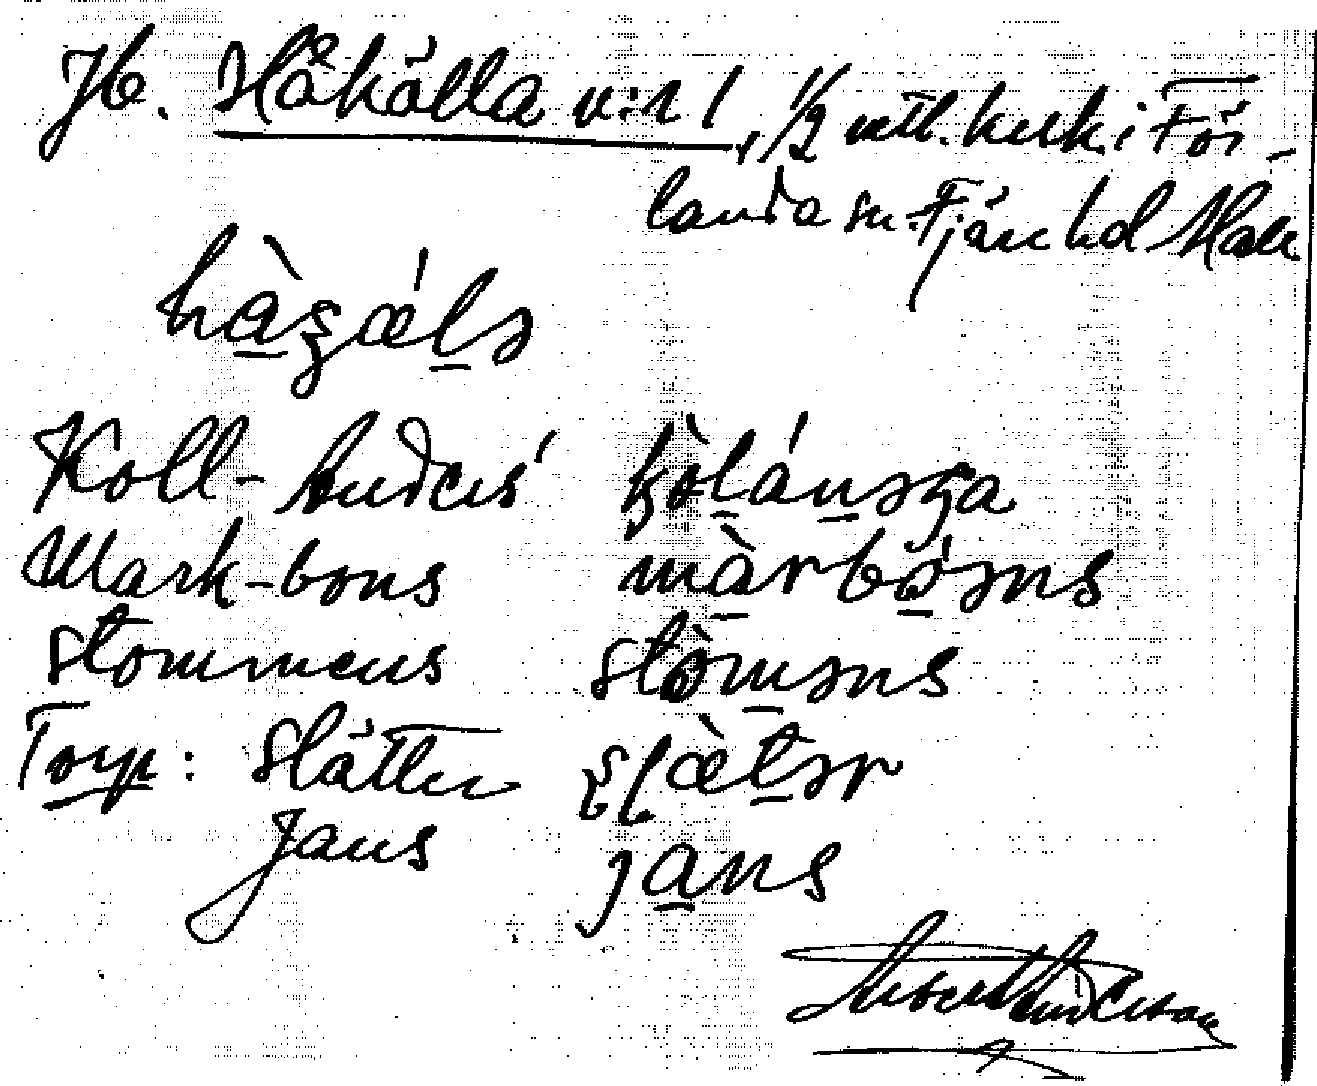 Jb. Håkälla v:r 1, 1/2 mtl. kusk. i För-
landa sn. Fjäre hd Hall
hàgǽls
Koll-Anders' kòlánəga
Mark-bons màrbóəns
Stommens stòməns
Torp: Slätter slætər
Jans jans